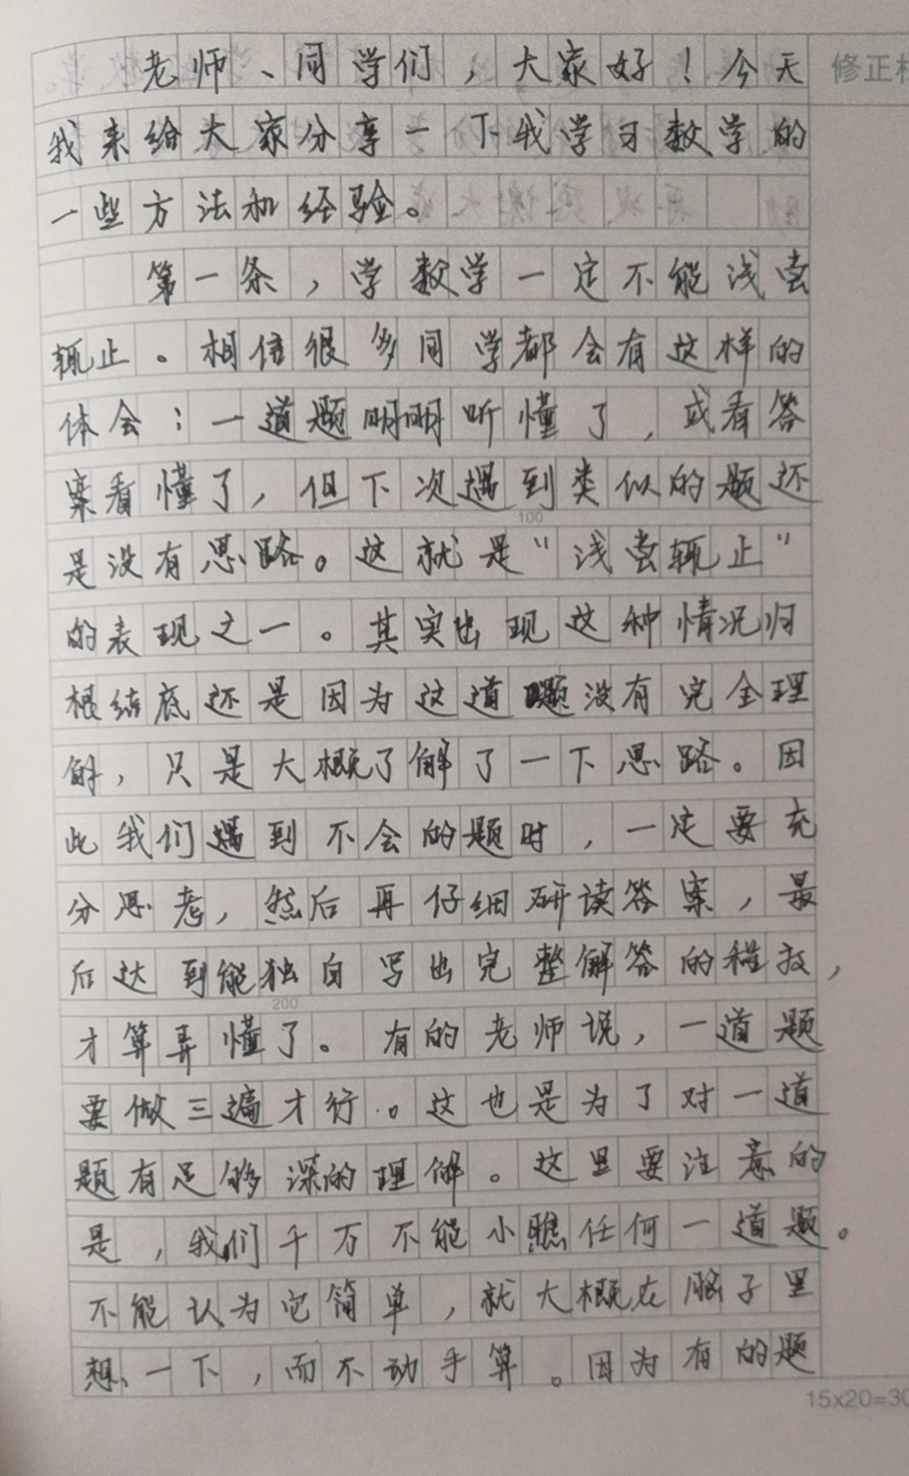 老师、同学们，大家好！今天
修正栏
我来给大家分享一下我学习数学的
一些方法和经验。
第一条，学数学一定不能浅尝
辄止。相信很多同学都会有这样的
体会：一道题明明听懂了，或看答
案看懂了，但下次遇到类似的题还
100
是没有思路。这就是“浅尝辄止”
的表现之一。其实出现这种情况归
根结底还是因为这道题没有完全理
解，只是大概了解了一下思路。因
此我们遇到不会的题时，一定要充
分思考，然后再仔细研读答案，最
后达到能独自写出完整解答的程度，
200
才算弄懂了。有的老师说，一道题
要做三遍才行。这也是为了对一道
题有足够深的理解。这里要注意的
是，我们千万不能小瞧任何一道题。
不能认为它简单，就大概在脑子里
想一下，而不动手算。因为有的题
15x20=30